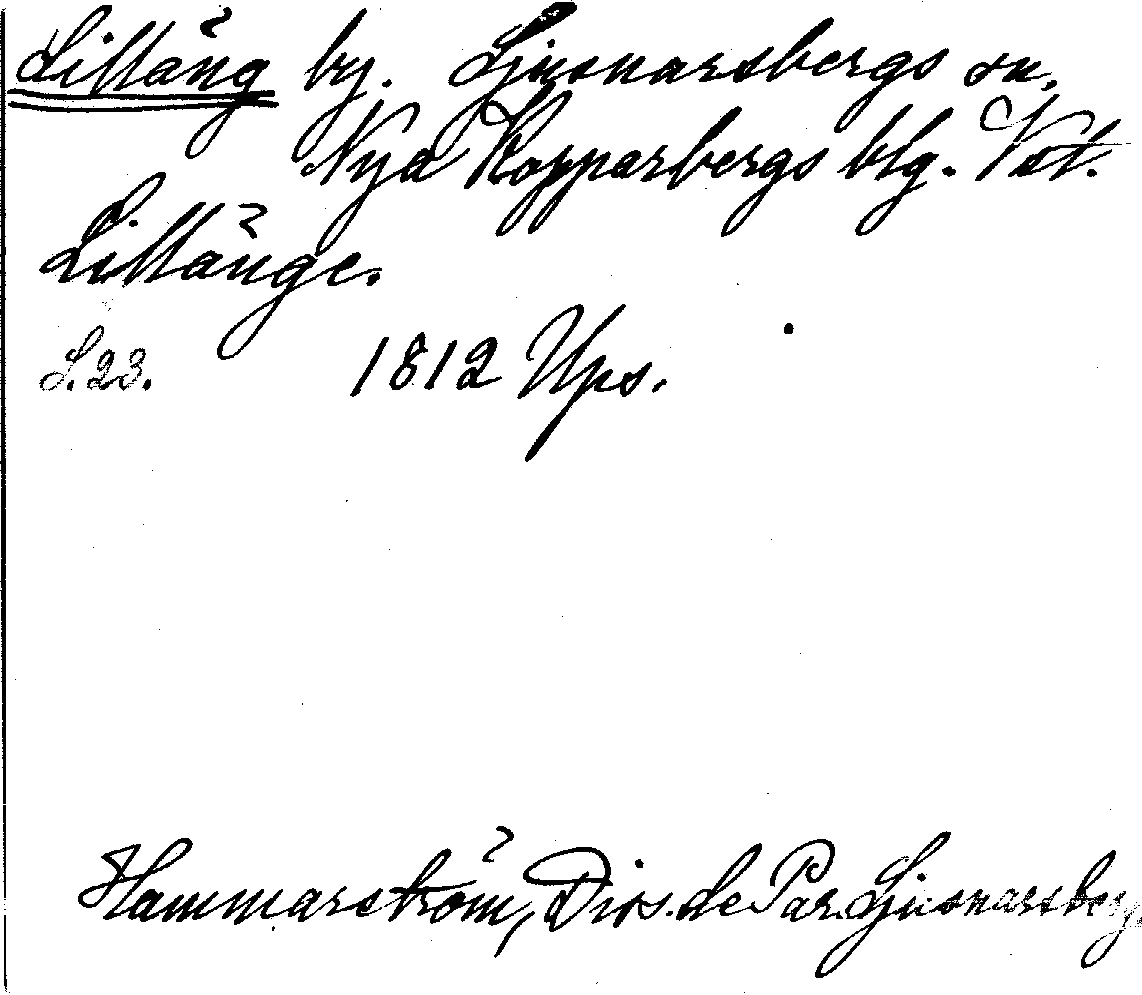 Lilläng by. Ljusnarsbergs sn.
Nya Kopparbergs blg. Vst.
Lillänge.
S. 23. 1812 Ups.
Hammarström, Diss. de Par. Ljusnarsberg.